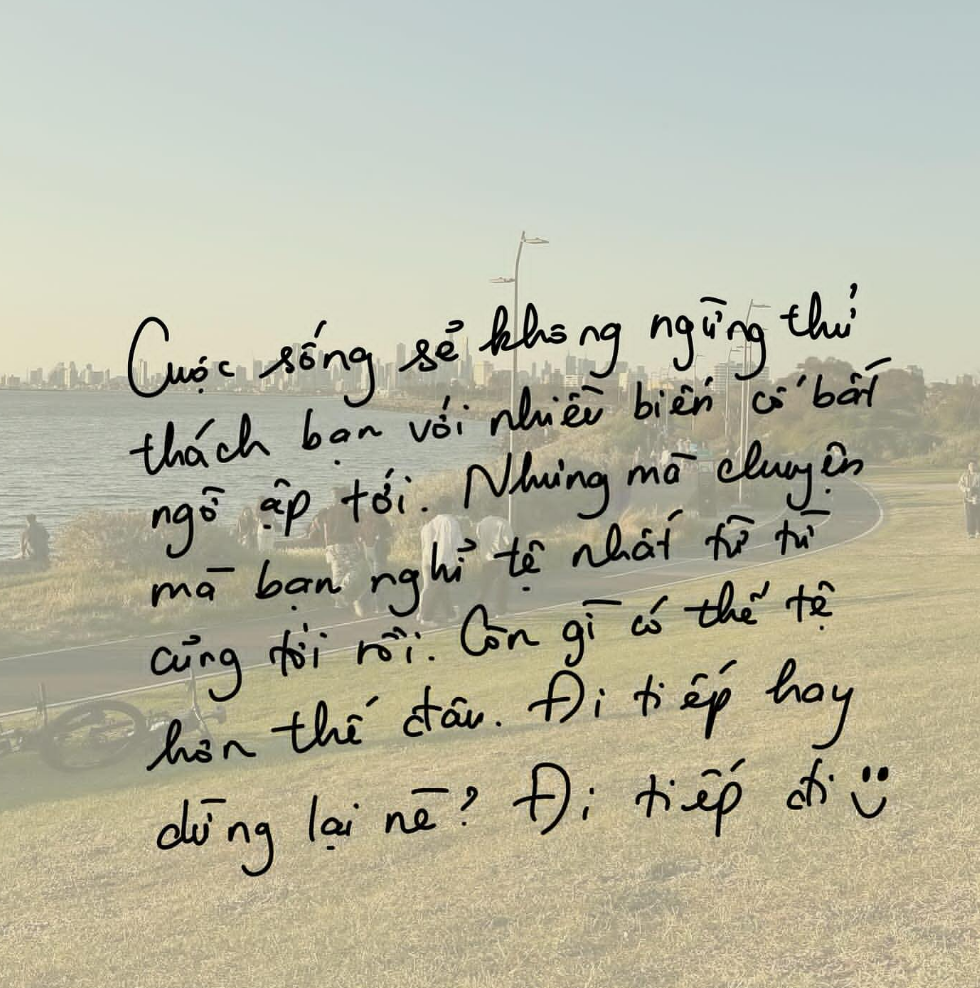 Cuộc sống sẽ không ngừng thử
thách bạn với nhiều biến cố bất
ngờ ập tới. Nhưng mà chuyện
mà bạn nghĩ tệ nhất từ từ
cũng tới rồi. Còn gì có thể tệ
hơn thế đâu. Đi tiếp hay
dừng lại nè? Đi tiếp đi